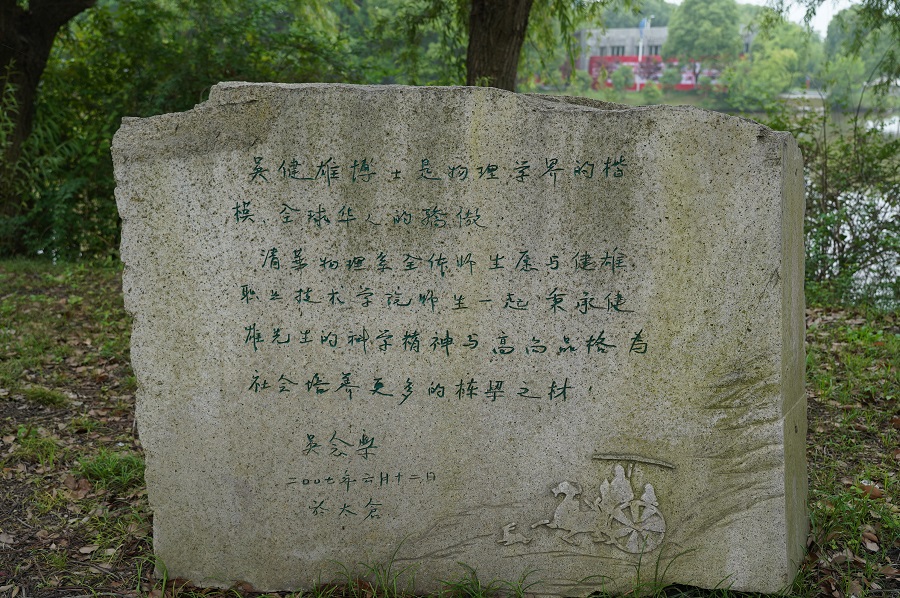 吴健雄博士是物理学界的楷
模、全球华人的骄傲.
清华物理系全体师生愿与健雄
职业技术学院师生一起秉承健
雄先生的科学精神与高尚品格为
社会培养更多的栋梁之材.
吴念乐
二00七年六月十二日
于太仓